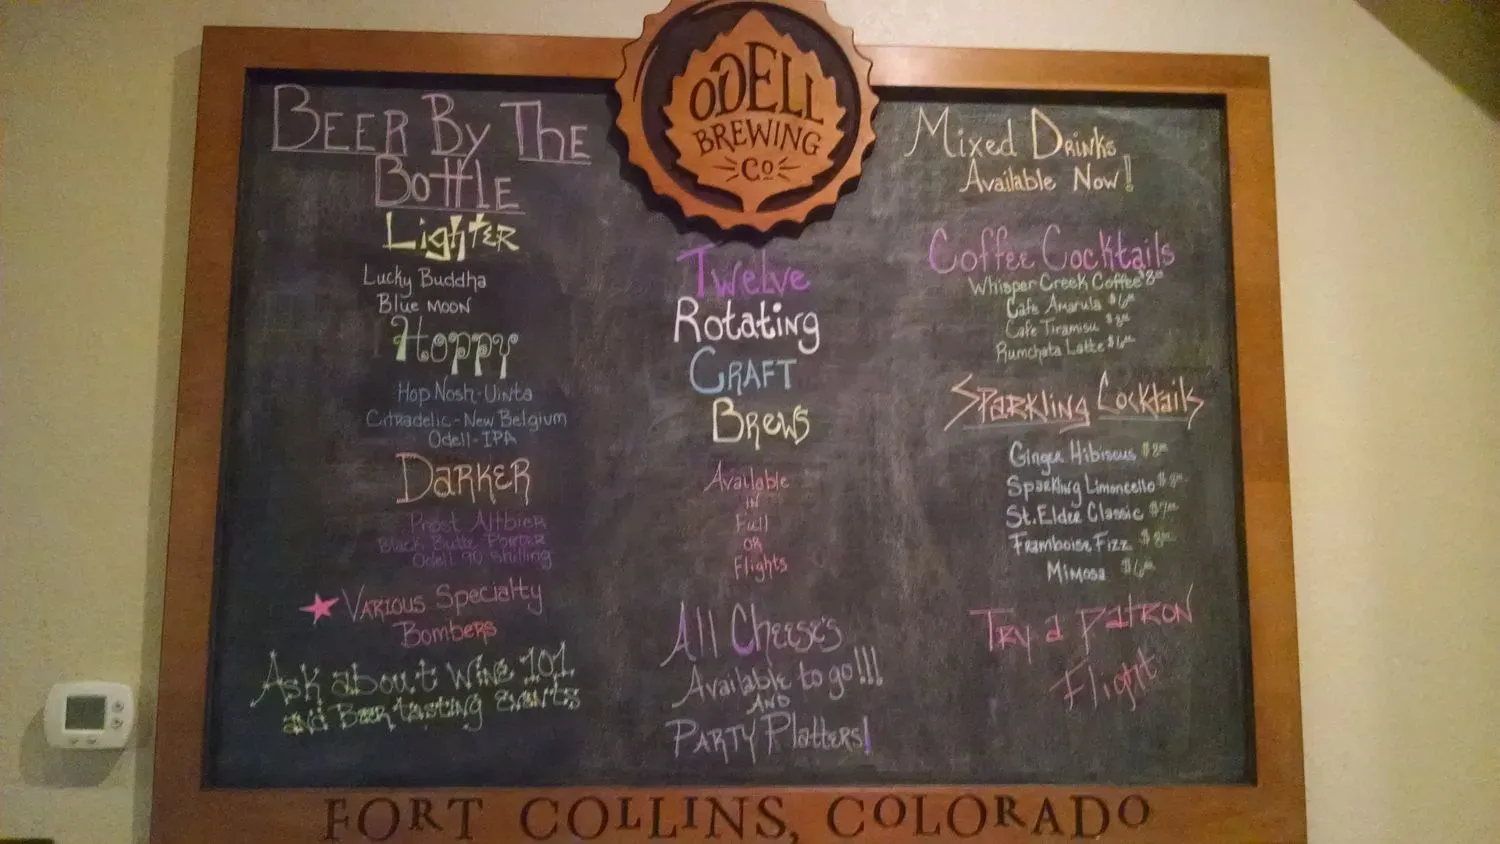 ODELL
BREWING
Co
BEER BY THE
BOTTLE
LIGHTER
Lucky Buddha
Blue MOON
Hoppy
Hop Nosh-Uinta
Citradelic-New Belgium
Odell-IPA
DARKER
Prost Altbier
Black Butte PORTER
Odell 90 Shilling
★ VARIOUS Specialty
Bombers
Ask about Wine 101
and Beer tasting events
Twelve
Rotating
CRAFT
BREWS
Available
IN
Full
OR
Flights
All Cheese's
Available to go!!!
AND
PARTY Platters!
Mixed Drinks
Available Now!
Coffee Cocktails
Whisper Creek Coffee
Cafe Amarula
Cafe Tiramisu
Rumchata Latte
Sparkling Cocktails
Ginger Hibiscus
Sparkling Limoncello
St. Elder Classic
Framboise Fizz
Mimosa
Try a Patron
Flight
FORT COLLINS, COLORADO